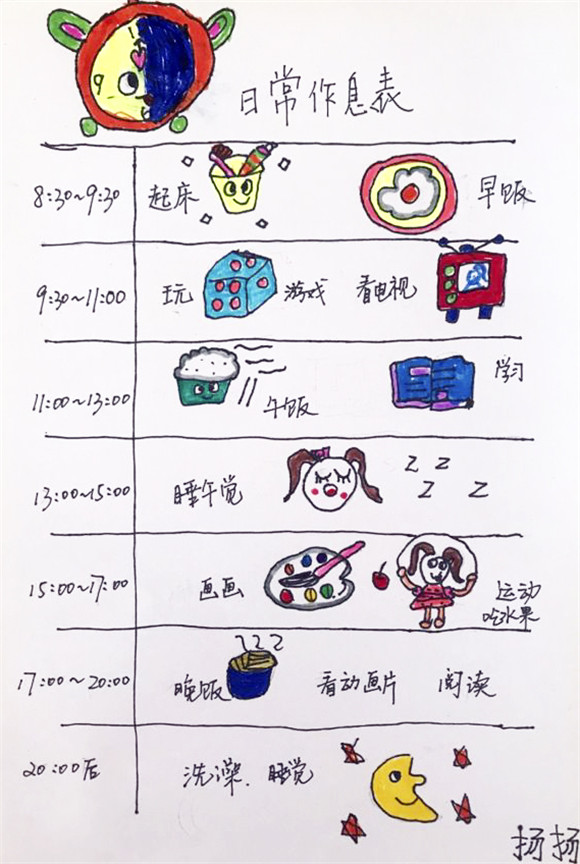 日常作息表
8:30~9:30 起床 早饭
9:30~11:00 玩 游戏 看电视
11:00~13:00 午饭 学习
13:00~15:00 睡午觉 z z z z
15:00~17:00 画画 运动
吃水果
17:00~20:00 晚饭 看动画片 阅读
20:00后 洗澡、睡觉
扬扬